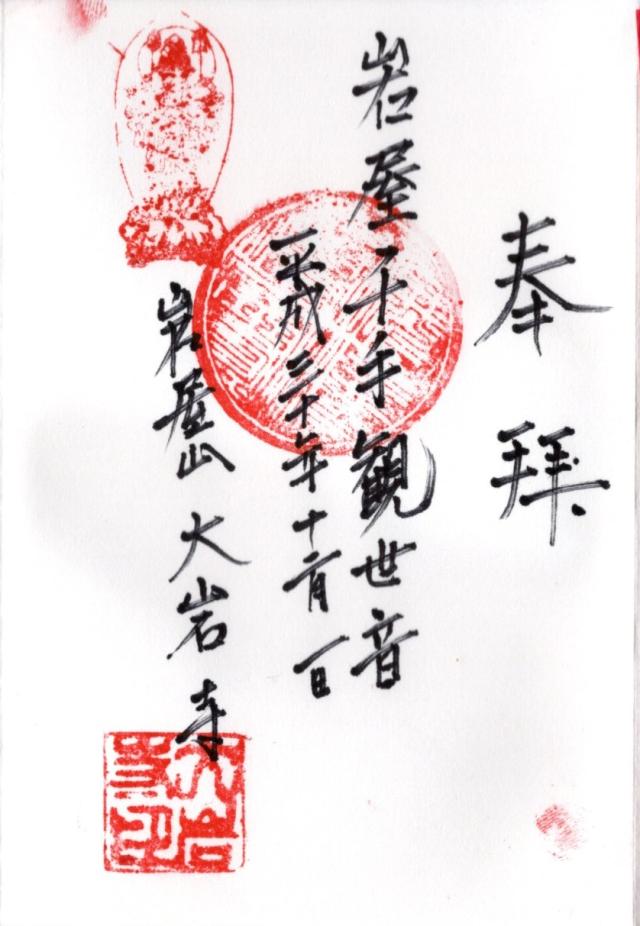 奉拝
岩屋千手観世音
平成三十年十一月一日
岩屋山 大岩寺
大岩寺印